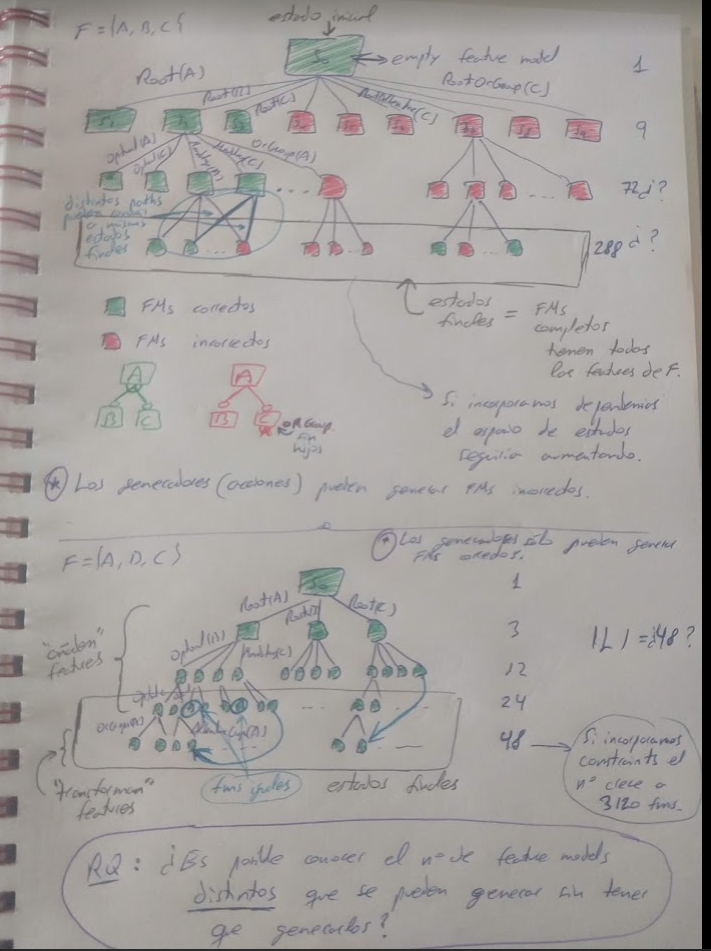 estado inicial
F = {A, B, C}
S₀
empty feature model
1
Root(A)
Root(B)
Root(C)
RootOrGroup(C)
9
Optional(A)
Optional(C)
OrGroup(A)
72¿?
distintos paths
pueden
a mismos
estados
finales
288¿?
FMs correctos
FMs incorrectos
estados
finales = FMs
completos
tienen todos
los features de F.
A
B C
A
B C
OR Group
sin
hijos
Si incorporamos dependencias
el espacio de estados
seguiría aumentando.
* Los generadores (acciones) pueden generar FMs incorrectos.
* Los generadores sólo pueden generar
FMs correctos.
F = {A, B, C}
S₀
1
Root(A)
Root(B)
Root(C)
3
|L| = ¿48?
"añaden"
features
Optional(B)
Mandatory(C)
12
24
OrGroup(A)
48
Si incorporamos
constraints el
nº crece a
3120 fms.
"transforman"
features
fms iguales
estados finales
RQ: ¿Es posible conocer el nº de feature models
distintos que se pueden generar sin tener
que generarlos?